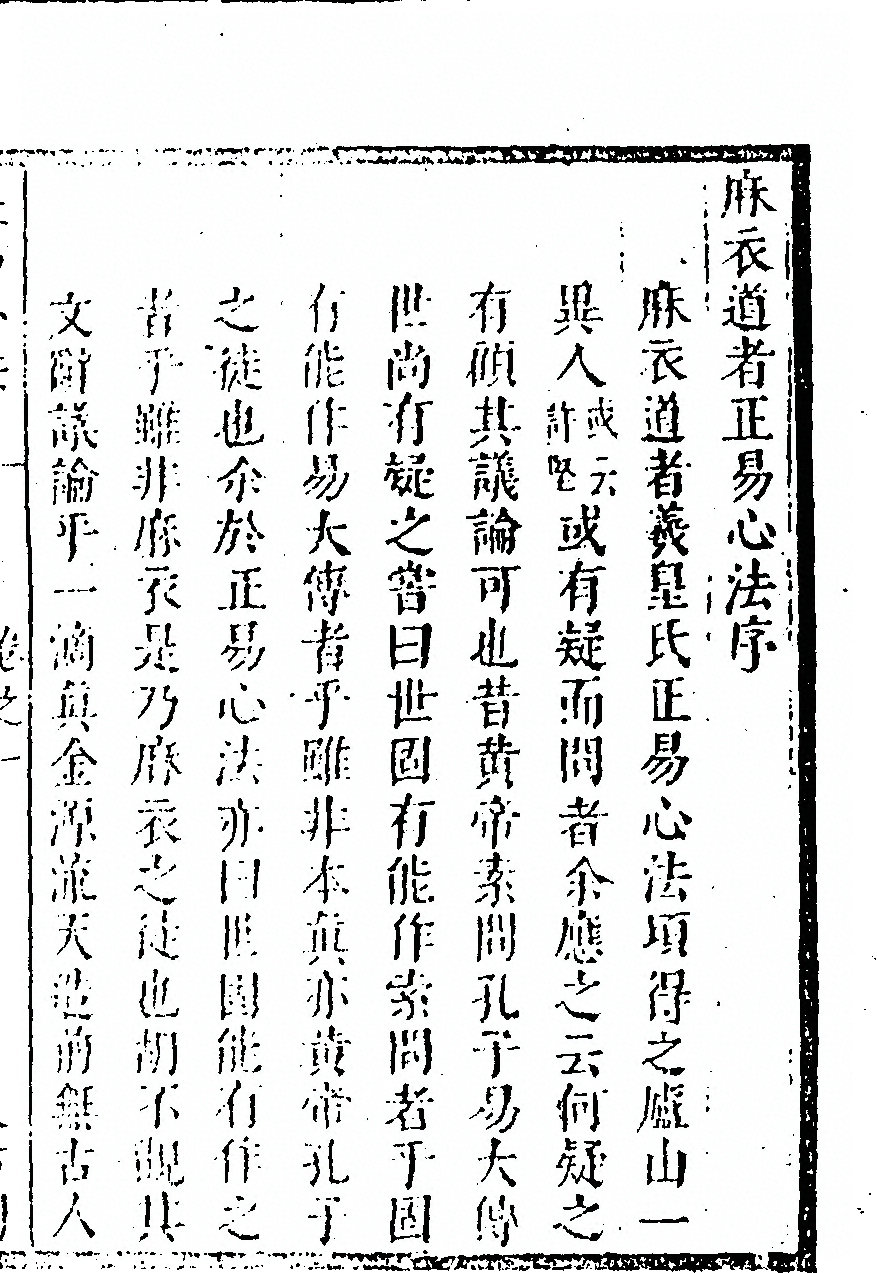 麻衣道者正易心法序
麻衣道者羲皇氏正易心法頃得之廬山一
異人或云許堅或有疑而問者余應之云何疑之
有顧其議論可也昔黃帝素問孔子易大傳
世尚有疑之嘗曰世固有能作素問者乎固
有能作易大傳者乎雖非本真亦黃帝孔子
之徒也余於正易心法亦曰世固能有作之
者乎雖非麻衣是乃麻衣之徒也胡不觀其
文辭議論乎一滴真金源流天造前無古人
卷之一